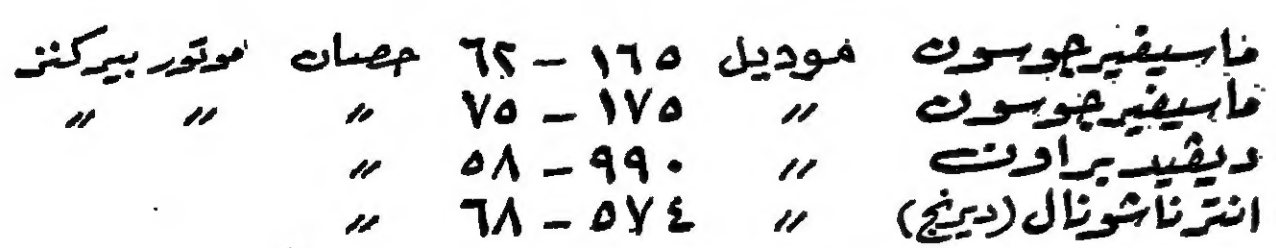 ماسيفيرجوسون موديل ١٦٥ – ٦٢ حصان موتور بيركنز
ماسيفيرجوسون 〃 ١٧٥ – ٧٥ 〃 〃 〃
ديڤيد براون 〃 ٩٩٠ – ٥٨ 〃
انترناشونال (ديرنج) 〃 ٥٧٤ – ٦٨ 〃